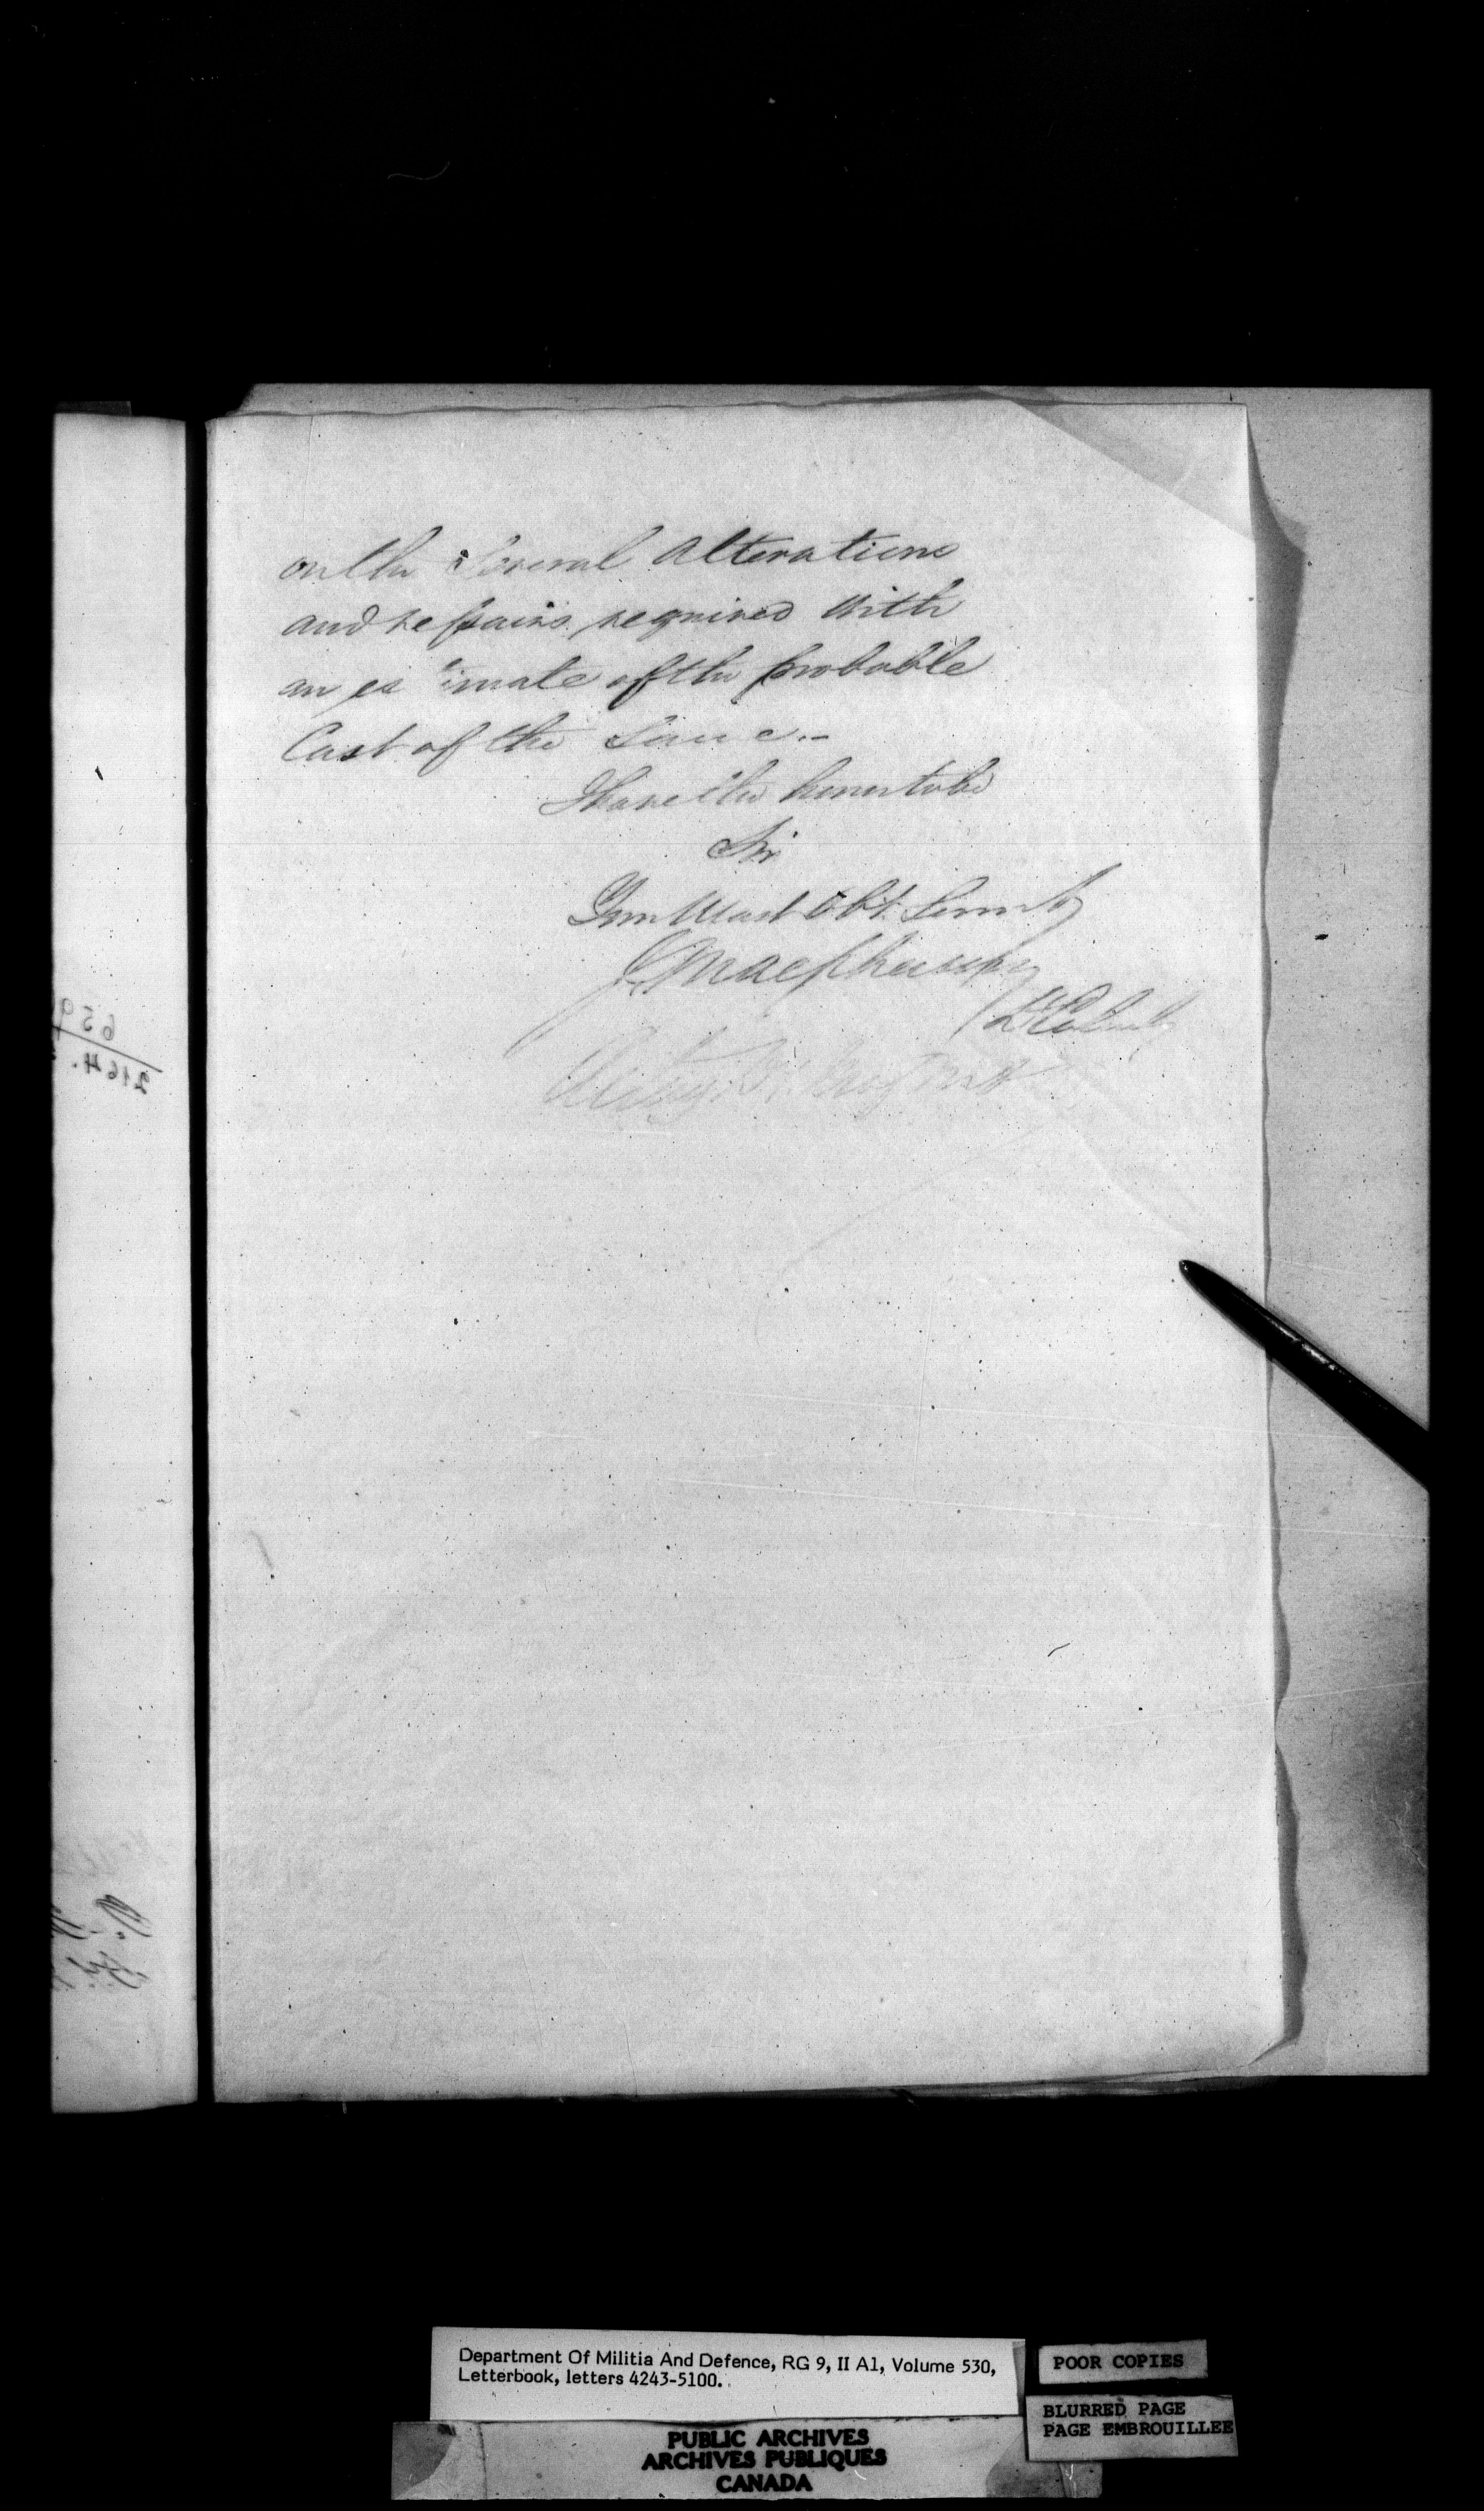 on the several Alterations
and repairs required with
an estimate of the probable
Cost of the same.-
I have the honor to be
Sir
Your Most Obt. Servant
J. Macpherson
Lt Colonel
659
2164.
Department Of Militia And Defence, RG 9, II A1, Volume 530,
Letterbook, letters 4243-5100.
POOR COPIES
BLURRED PAGE
PAGE EMBROUILLEE
PUBLIC ARCHIVES
ARCHIVES PUBLIQUES
CANADA